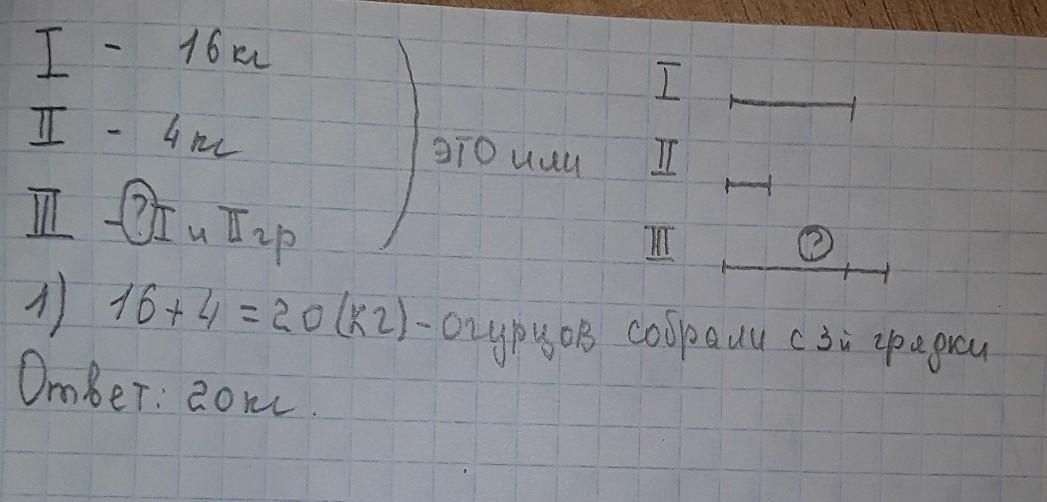 I - 16 кг
II - 4 кг
III - ? I и II гр
это или
I
II
III
?
1) 16 + 4 = 20 (кг) - огурцов собрали с 3й грядки
Ответ: 20 кг.